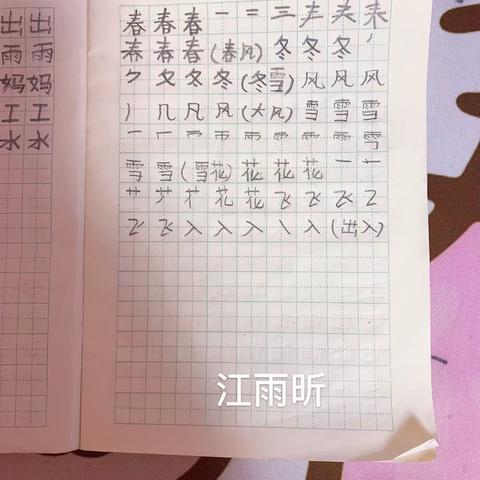 出 出
雨 雨
妈 妈
工 工
水 水
春 春 春 一 二 三 丰 夫
春 春 春 (春风) 冬 冬 冬 丿
夕 夂 冬 冬 (冬雪) 风 风 风
丿 几 凡 风 (大风) 雪 雪 雪
雪 雪 (雪花) 花 花 花 一 十
艹 花 花 飞 飞 飞 乙
飞 飞 入 入 入 丶 入 (出入)
江雨昕